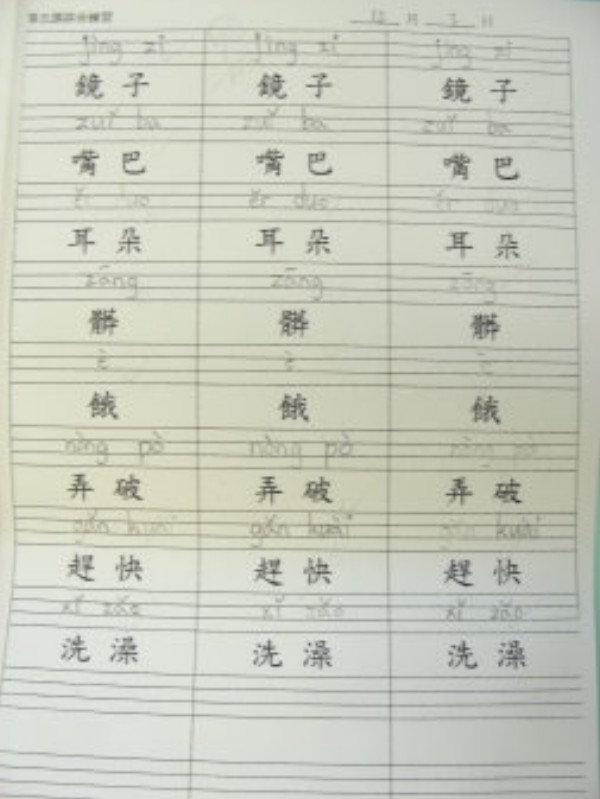 第五課拼音練習 12 月 3 日
jìng zi jìng zi jìng zi
鏡子 鏡子 鏡子
zuǐ ba zuǐ ba zuǐ ba
嘴巴 嘴巴 嘴巴
ěr duo ěr duo ěr duo
耳朵 耳朵 耳朵
zāng zāng zāng
髒 髒 髒
è è è
餓 餓 餓
nòng pò nòng pò nòng pò
弄破 弄破 弄破
gǎn kuài gǎn kuài gǎn kuài
趕快 趕快 趕快
xǐ zǎo xǐ zǎo xǐ zǎo
洗澡 洗澡 洗澡